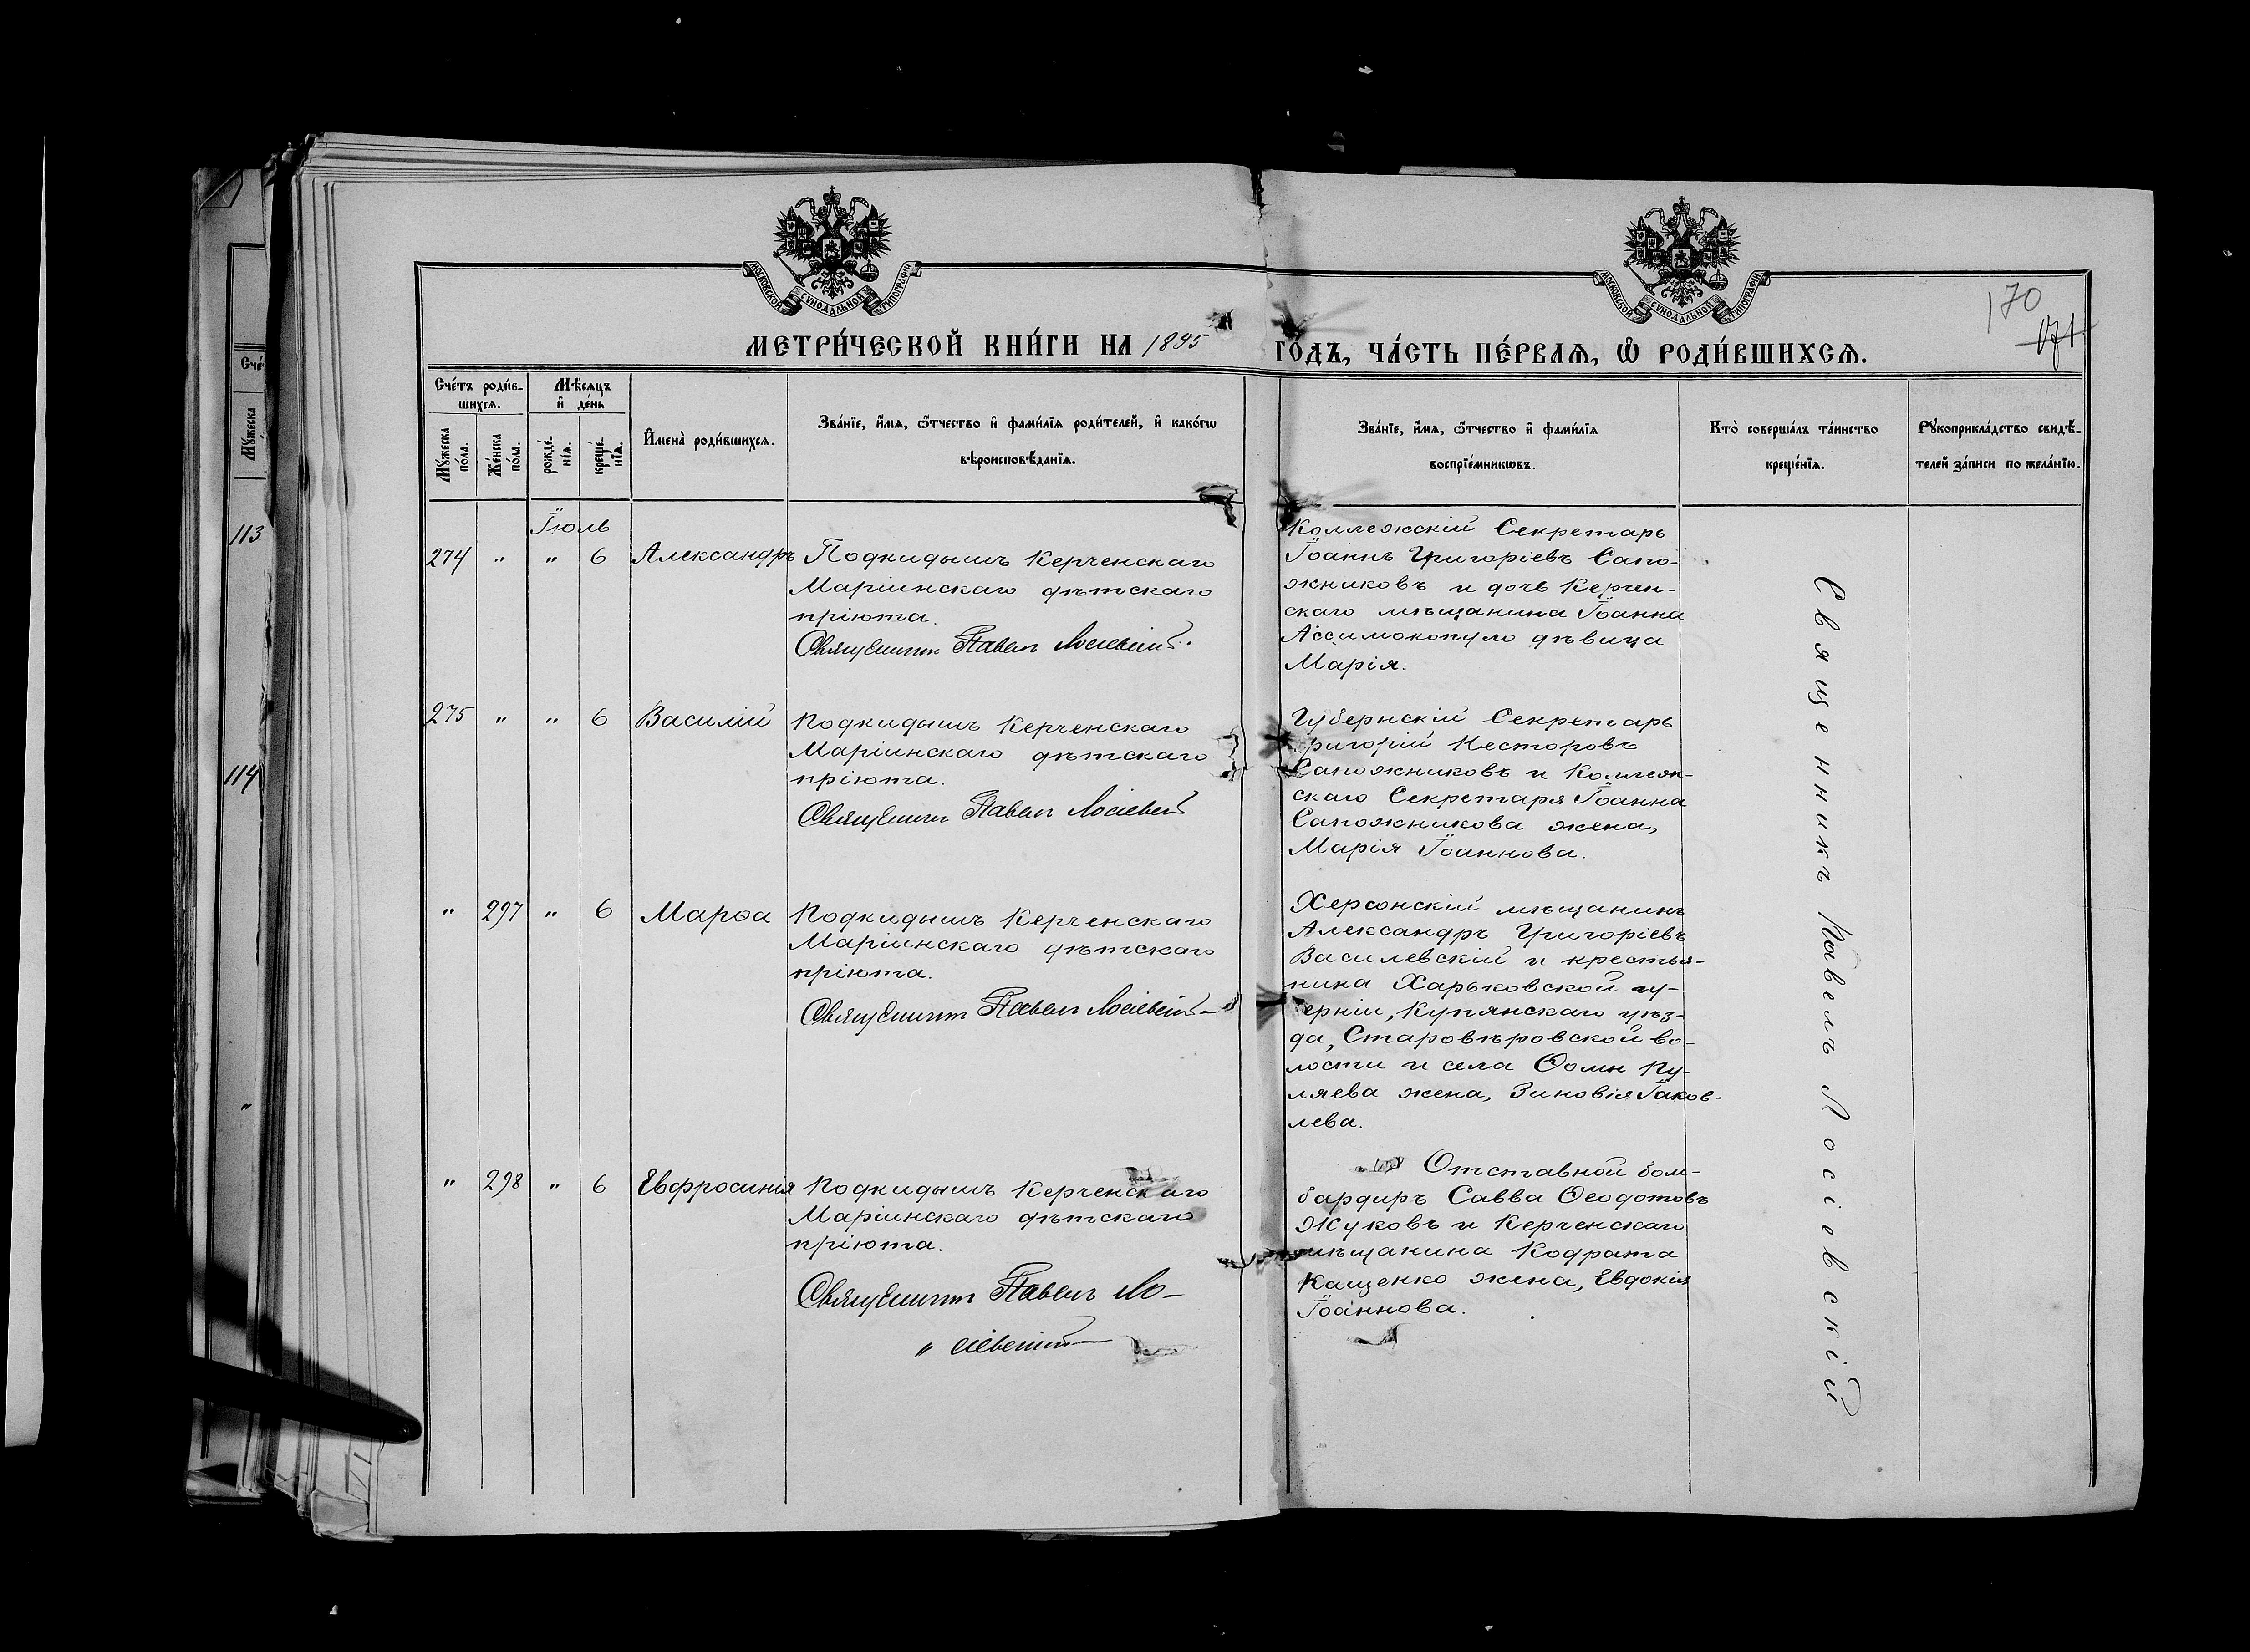 МОСКОВСКОЙ СѴНОДАЛЬНОЙ ТИПОГРАФІИ
МОСКОВСКОЙ СѴНОДАЛЬНОЙ ТИПОГРАФІИ
170
171
МЕТРИ́ЧЕСКОЙ КНИ́ГИ НА 1895
ГОДЪ, ЧА́СТЬ ПЕ́РВАѦ, Ѡ҆ РОДИ́ВШИХСѦ.
Сче́тъ роди́в-
шихсѧ.
Мꙋ́жеска
по́ла.
Же́нска
по́ла.
Мѣ́сѧцъ
и҆ де́нь
рожде́-
нїѧ.
креще́-
нїѧ.
И҆мена̀ роди́вшихсѧ.
Зва́нїе, и҆́мѧ, ѻ҆́тчество и҆ фами́лїѧ роди́телей, и҆ како́гѡ
вѣроисповѣ́данїѧ.
Зва́нїе, и҆́мѧ, ѻ҆́тчество и҆ фами́лїѧ
воспрїе́мникѡвъ.
Кто̀ соверша́лъ та́инство
креще́нїѧ.
Рꙋкоприкла́дство свидѣ́-
телей за́писи по жела́нїю.
113
114
"
Іюль
274 " " 6 Александръ
Подкидышъ Керченскаго
Маріинскаго дѣтскаго
пріюта.
Священникъ Павелъ Лосіевскій.
Коллежскій Секретарь
Іоаннъ Григоріевъ Сапо-
жниковъ и дочь Керчен-
скаго мѣщанина Іоанна
Ассимокопуло дѣвица
Марія.
275 " " 6 Василій
Подкидышъ Керченскаго
Маріинскаго дѣтскаго
пріюта.
Священникъ Павелъ Лосіевскій
Губернскій Секретарь
Григорій Несторовъ
Сапожниковъ и Коллеж-
скаго Секретаря Іоанна
Сапожникова жена,
Марія Іоаннова.
" 297 " 6 Марѳа
Подкидышъ Керченскаго
Маріинскаго дѣтскаго
пріюта.
Священникъ Павелъ Лосіевскій
Херсонскій мѣщанинъ
Александръ Григоріевъ
Василевскій и крестья-
нина Харьковской гу-
берніи, Купянскаго уѣз-
да, Старовѣровской во-
лости и села Ѳомы Ку-
ляева жена, Зиновія Іаков-
лева.
" 298 " 6 Евфросинія
Подкидышъ Керченскаго
Маріинскаго дѣтскаго
пріюта.
Священникъ Павелъ Ло-
" сіевскій
Отставной бом-
бардиръ Савва Ѳеодотовъ
Жуковъ и Керченскаго
мѣщанина Кодрата
Кащенко жена, Евдокія
Іоаннова.
Священникъ Павелъ Лосіевскій